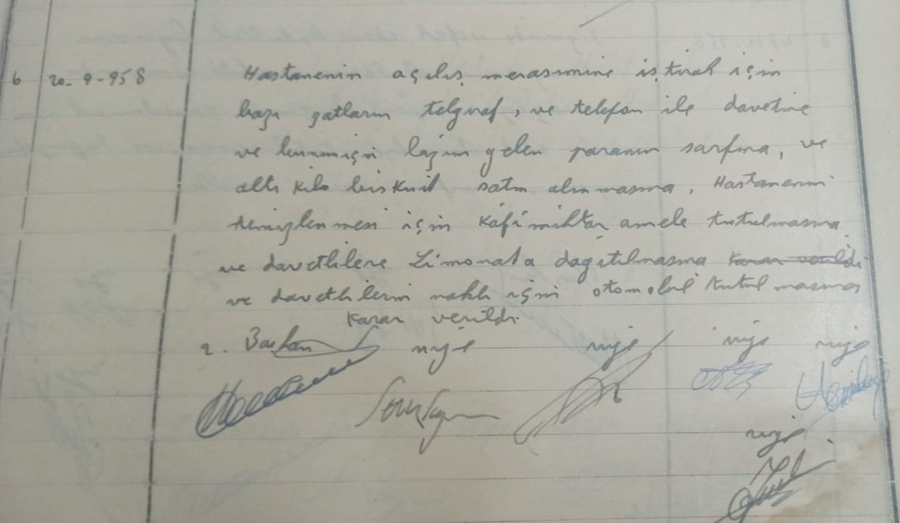 6 20-9-958 Hastanenin açılış merasimine iştirak için
bazı zatların telgraf, ve telefon ile davetine
ve bunun için lazım gelen paranın sarfına, ve
altı kilo bisküit satın alınmasına, Hastanenin
temizlenmesi için kâfi miktar amele tutulmasına
ve davetlilere Limonata dağıtılmasına karar verildi
ve davetlilerin nakli için otomobil tutulmasına
karar verildi.
Başkan